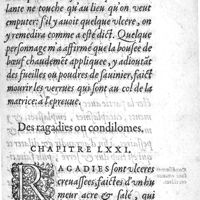 lante ne touche qu'au lieu qu'on veut
emputer: s'il y auoit quelque vlcere, on
y remedira comme a esté dict. Quelque
personnage m'a affirmé que la bouse de
bœuf chaudemēt appliquee, y adioutāt
des fueilles ou poudres de sauinier, faict
mourir les verrues qui sont au col de la
matrice: a l'epreuue.
Des ragadies ou condilomes,
CHAPITRE LXXI.
RAGADIES sont vlceres
creuassees, faictes d'vn hu
meur acre & salé, qui